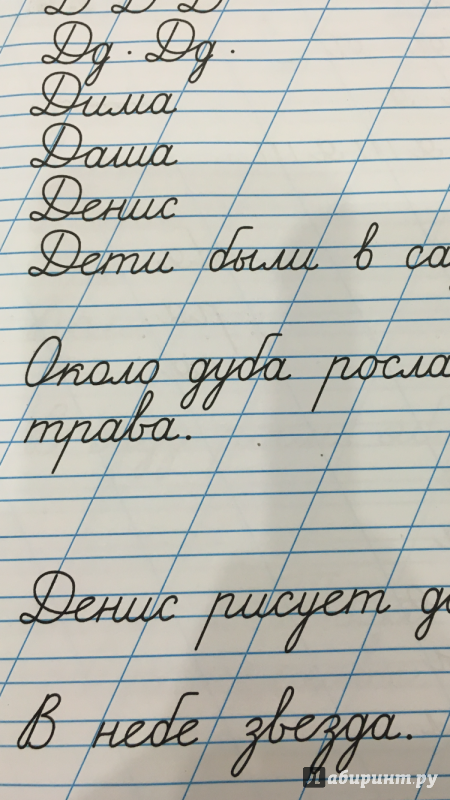 Д Д Д
Дд. Дд.
Дима
Даша
Денис
Дети были в са
Около дуба росла
трава.
Денис рисует до
В небе звезда.
Лабиринт.ру